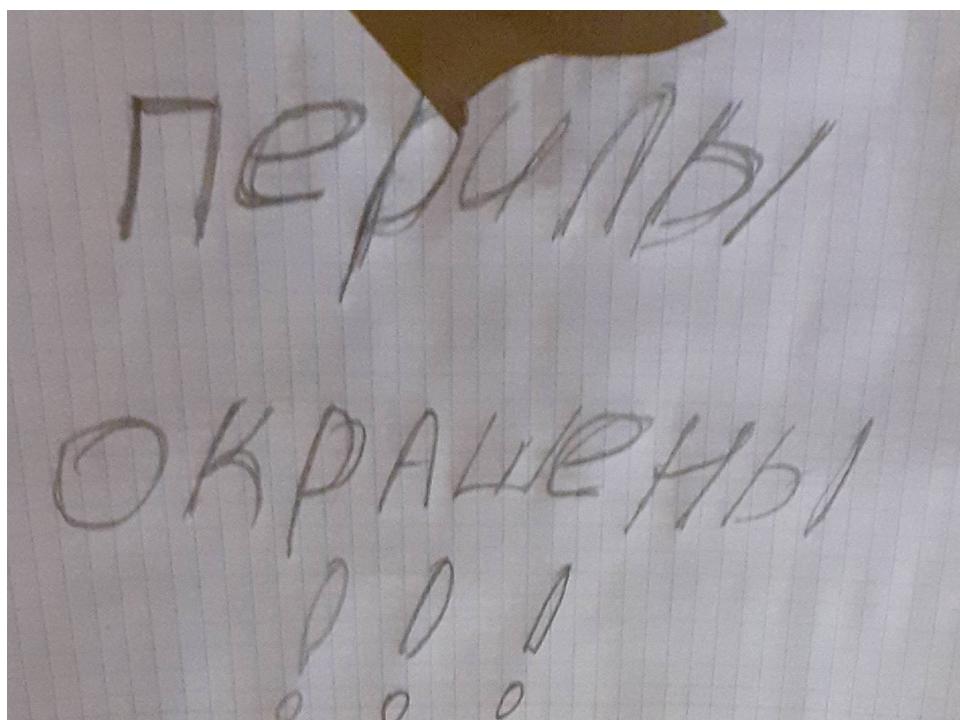 перилы
окрашены
!!!